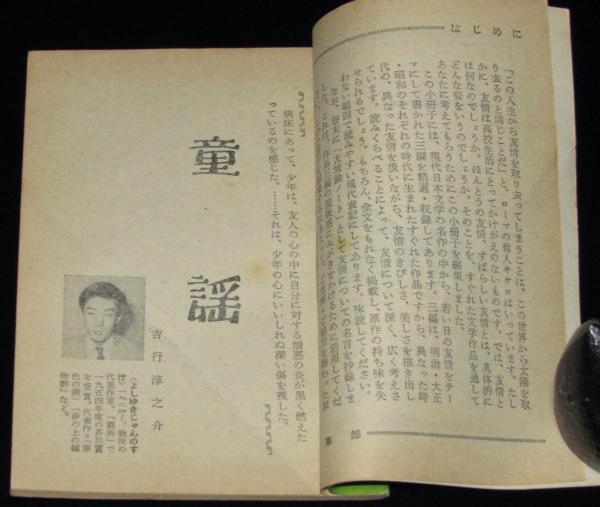 はじめに
「この人生から友情を取り去ってしまうことは、この世界から太陽を取
り去るのと同じことだ」と、ローマの哲人キケロはいっています。たし
かに、友情は高校生活にとってかけがえのないものです。では、友情と
は何なのでしょうか。ほんとうの友情、すばらしい友情とは、具体的に
どんな姿をいうのでしょうか。そのことを、すぐれた文学作品を通して
あなたに考えてもらうためにこの小冊子を編集しました。
この小冊子には、現代日本文学の名作の中から、若い日の友情をテー
マにして書かれた三編を精選・収録してあります。三編は、明治・大正
・昭和のそれぞれの時代に生まれたすぐれた作品ですから、異なった時
代の、異なった友情を扱いながら、友情のきびしさ、美しさを描き出し
ています。読みくらべることによって、友情について深く、広く考えさ
せられるでしょう。もちろん、全文をもれなく掲載し、原作の持ち味を失
わない範囲で読みやすい現代表記にしてあります。味読してください。
なお、巻末に「友情論ノート」として友情についての名言を抄録しま
した。これは、作品三編の
郎
童謡
病床にあって、少年は、友人の心の中に自分に対する憎悪の炎が黒く燃えた
っているのを感じた。……それは、少年の心にいいしれぬ深い傷を残した。
吉行淳之介
〈よしゆきじゅんのす
け〉
戦後の
代表作家。「驟雨」で
一九五四年度の芥川賞
を受賞。代表作＝「原
色の街」「砂の上の植
物群」など。